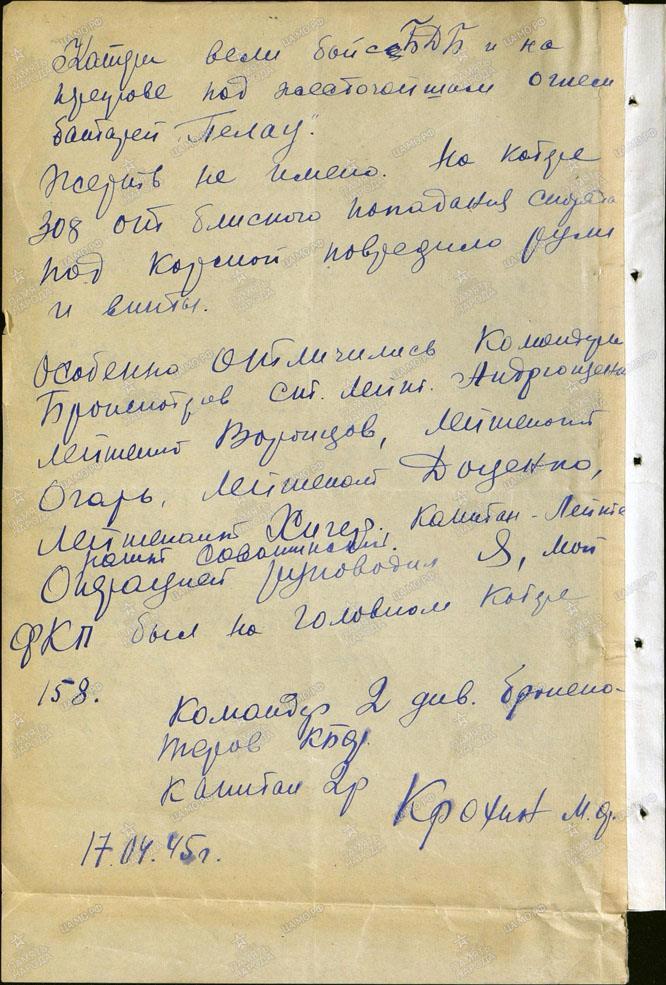 Катера вели бой с БДБ и на
переправе под жесточайшим огнем
батарей "Пелау".
Жертв не имею. На катере
308 от близкого попадания снаряда
под кормой повредило рули
и винты.
Особенно отличились командиры
бронекатеров ст. лейт.
лейтенант Воронцов, лейтенант
Огарь, лейтенант Доценко,
лейтенант капитан-лейте
нант Савотинский.
Операцией руководил Я, мой
ФКП был на головном катере
158.
Командир 2 див. бронека-
теров КБФ
Капитан 2р
Крохин М.Ф.
17.04.45г.